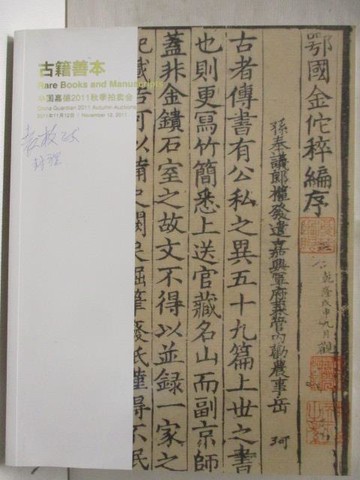 古籍善本
Rare Books and Manuscripts
中国嘉德2011秋季拍卖会
China Guardian 2011 Autumn Auctions
2011年11月12日 | November 12, 2011
鄂國金佗稡編序
孫奉議郎權發遣嘉興軍府兼管內勸農事岳 珂
古者傳書有公私之異五十九篇上世之書
也則更寫竹簡悉上送官藏名山而副京師
蓋非金鐀石室之故文不得以並録一家之